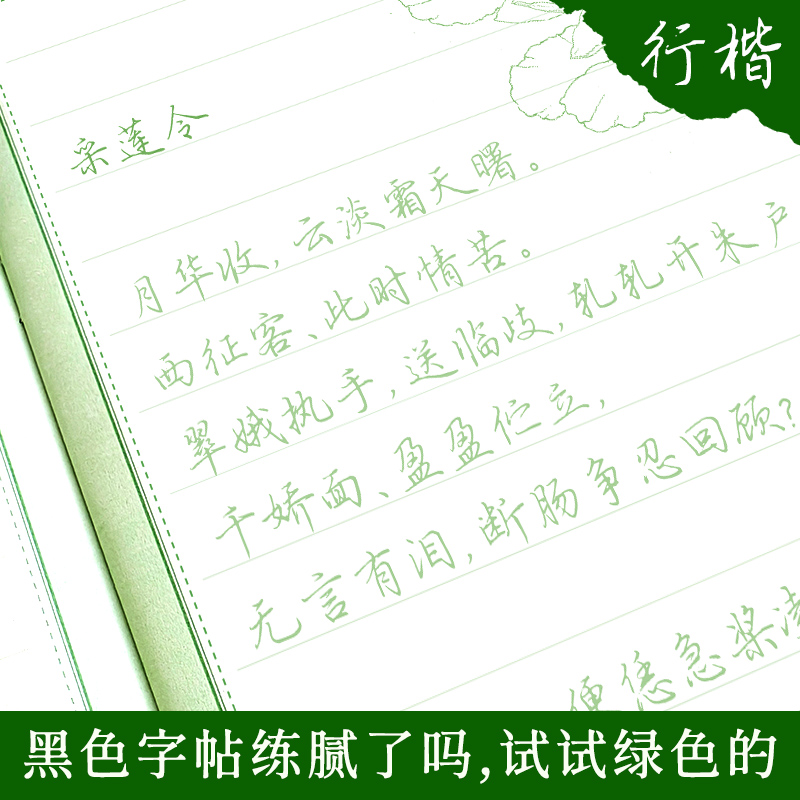 行楷
采莲令
月华收，云淡霜天曙。
西征客、此时情苦。
翠娥执手，送临歧，轧轧开朱户
千娇面、盈盈伫立，
无言有泪，断肠争忍回顾？
便恁急桨凌
黑色字帖练腻了吗,试试绿色的